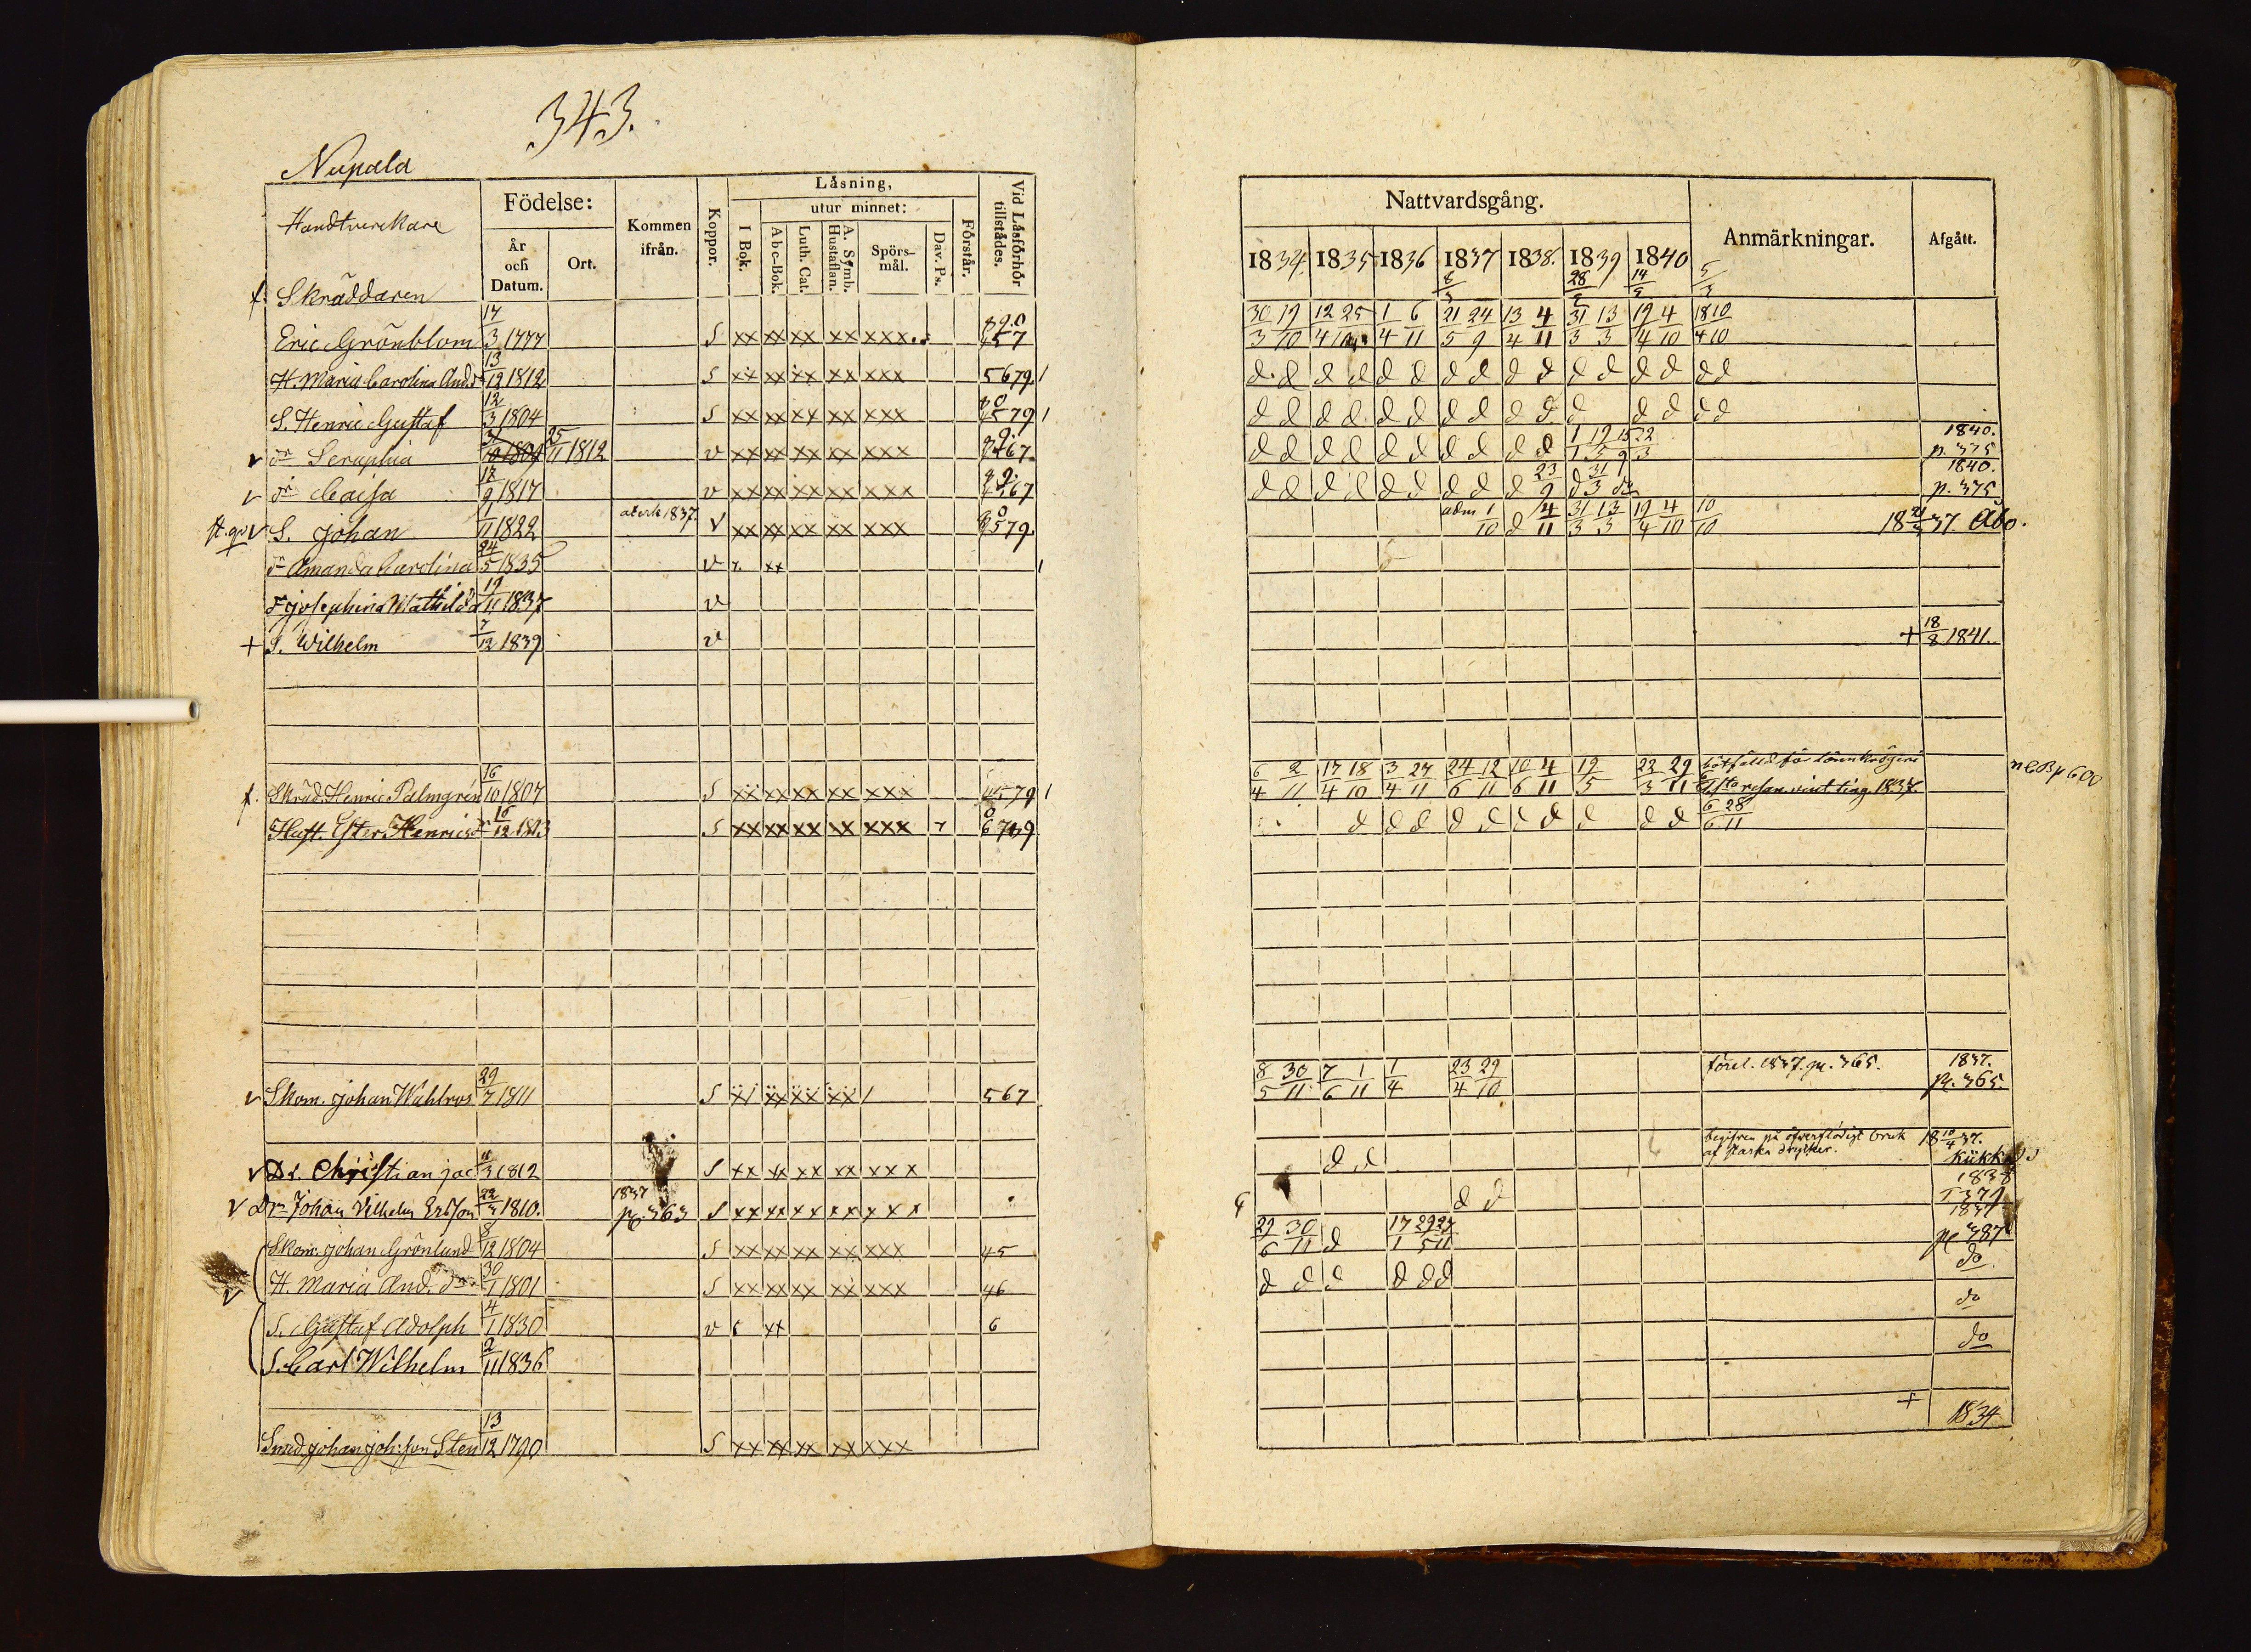 343.
Nupala
Handtverkare
Födelse:
År
och
Datum.
Ort.
Kommen
ifrån.
Koppor.
Läsning,
utur minnet:
I Bok.
Abc-Bok.
Luth. Cat.
A. Symb.
Hustaflan.
Spörs-
mål.
Dav. Ps.
Förstår.
Vid Läsförhör
tillstädes.
f. Skräddaren
Eric Grönblom 17/3 1777 S xx xx xx xx xxx
H. Maria Carolina And.dr 13/12 1812 S xx xx xx xx xxx 5679 1
S. Henric Gustaf 12/3 1804 S xx xx xx xx xxx 579 1
v dr Seraphia 31/10 1804 25/11 1812 v xx xx xx xx xxx 67
v dr Caisa 17/9 1817 v xx xx xx xx xxx 67
v S. Johan 1/11 1822 återk 1837. v xx xx xx xx xxx 579
dr Amanda Carolina 24/5 1835 v xx 1
dr Josephina Mathilda 19/11 1837 v
+ S. Wilhelm 7/12 1839 v
f. Skräd. Henric Palmgrén 16/10 1807 S xx xx xx xx xxx 579 1
Hust. Ester Henricsdr 16/12 1803 S xx xx xx xx xxx
v Skom. Johan Wahlros 29/7 1811 S 567
v Dr. Christian Jac 11/3 1812 S xx xx xx xx xxx
v Drn Johan Vilhelm Ersson 22/3 1810. 1837 pg. 363 S xx xx xx xx xxx
Skom. Johan Grönlund 8/12 1804 S xx xx xx xx xxx 45
v H. Maria And. dr 30/1 1801 S xx xx xx xx xxx 46
S. Gustaf Adolph 4/1 1830 v xx 6
S. Carl Wilhelm 2/11 1836
Joh:son Sten 13/12 1790 S xx xx xx xx xxx
Nattvardsgång.
Anmärkningar.
Afgått.
1834. 1835 1836 1837 1838. 1839 1840
8/3 28/5 14/5 5/3
30/3 19/10 12/4 25/10 1/4 6/11 21/5 24/9 13/4 4/11 31/3 13/3 19/4 4/10 18/4 10/10
d d d d d d d d d d d d d d d d
d d d d d d d d d d d d d d d
d d d d d d d d d d 1/1 19/5 15/9 22/3 1840. p. 375
d d d d d d d d d 23/9 d 31/3 1840. p. 375
adm 1/10 d 4/11 31/3 13/3 19/4 4/10 10/10 37. Åbo.
+ 18/8 1841.
6/4 2/11 17/4 18/10 3/4 27/11 24/6 12/11 10/6 4/11 19/5 22/3 29/11 bötfälld för lönnkrögeri
resan vint. ting 1837.
d d d d d d d d d d 6/6 28/11
8/5 30/11 7/6 1/11 1/4 23/4 29/10 förel. 1837. pg. 365. 1837. pg. 365
d d begifven på öfverflödigt bruk
af starka drycker. 18 10/4 37.
d d 1838
29/6 30/11 d 17/1 29/5 27/11 1837 pg. 387
d d d d d d do
do
do
+ 1834